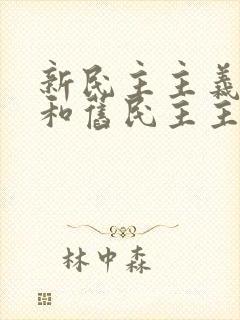 新民主主義
和舊民主主
林中森